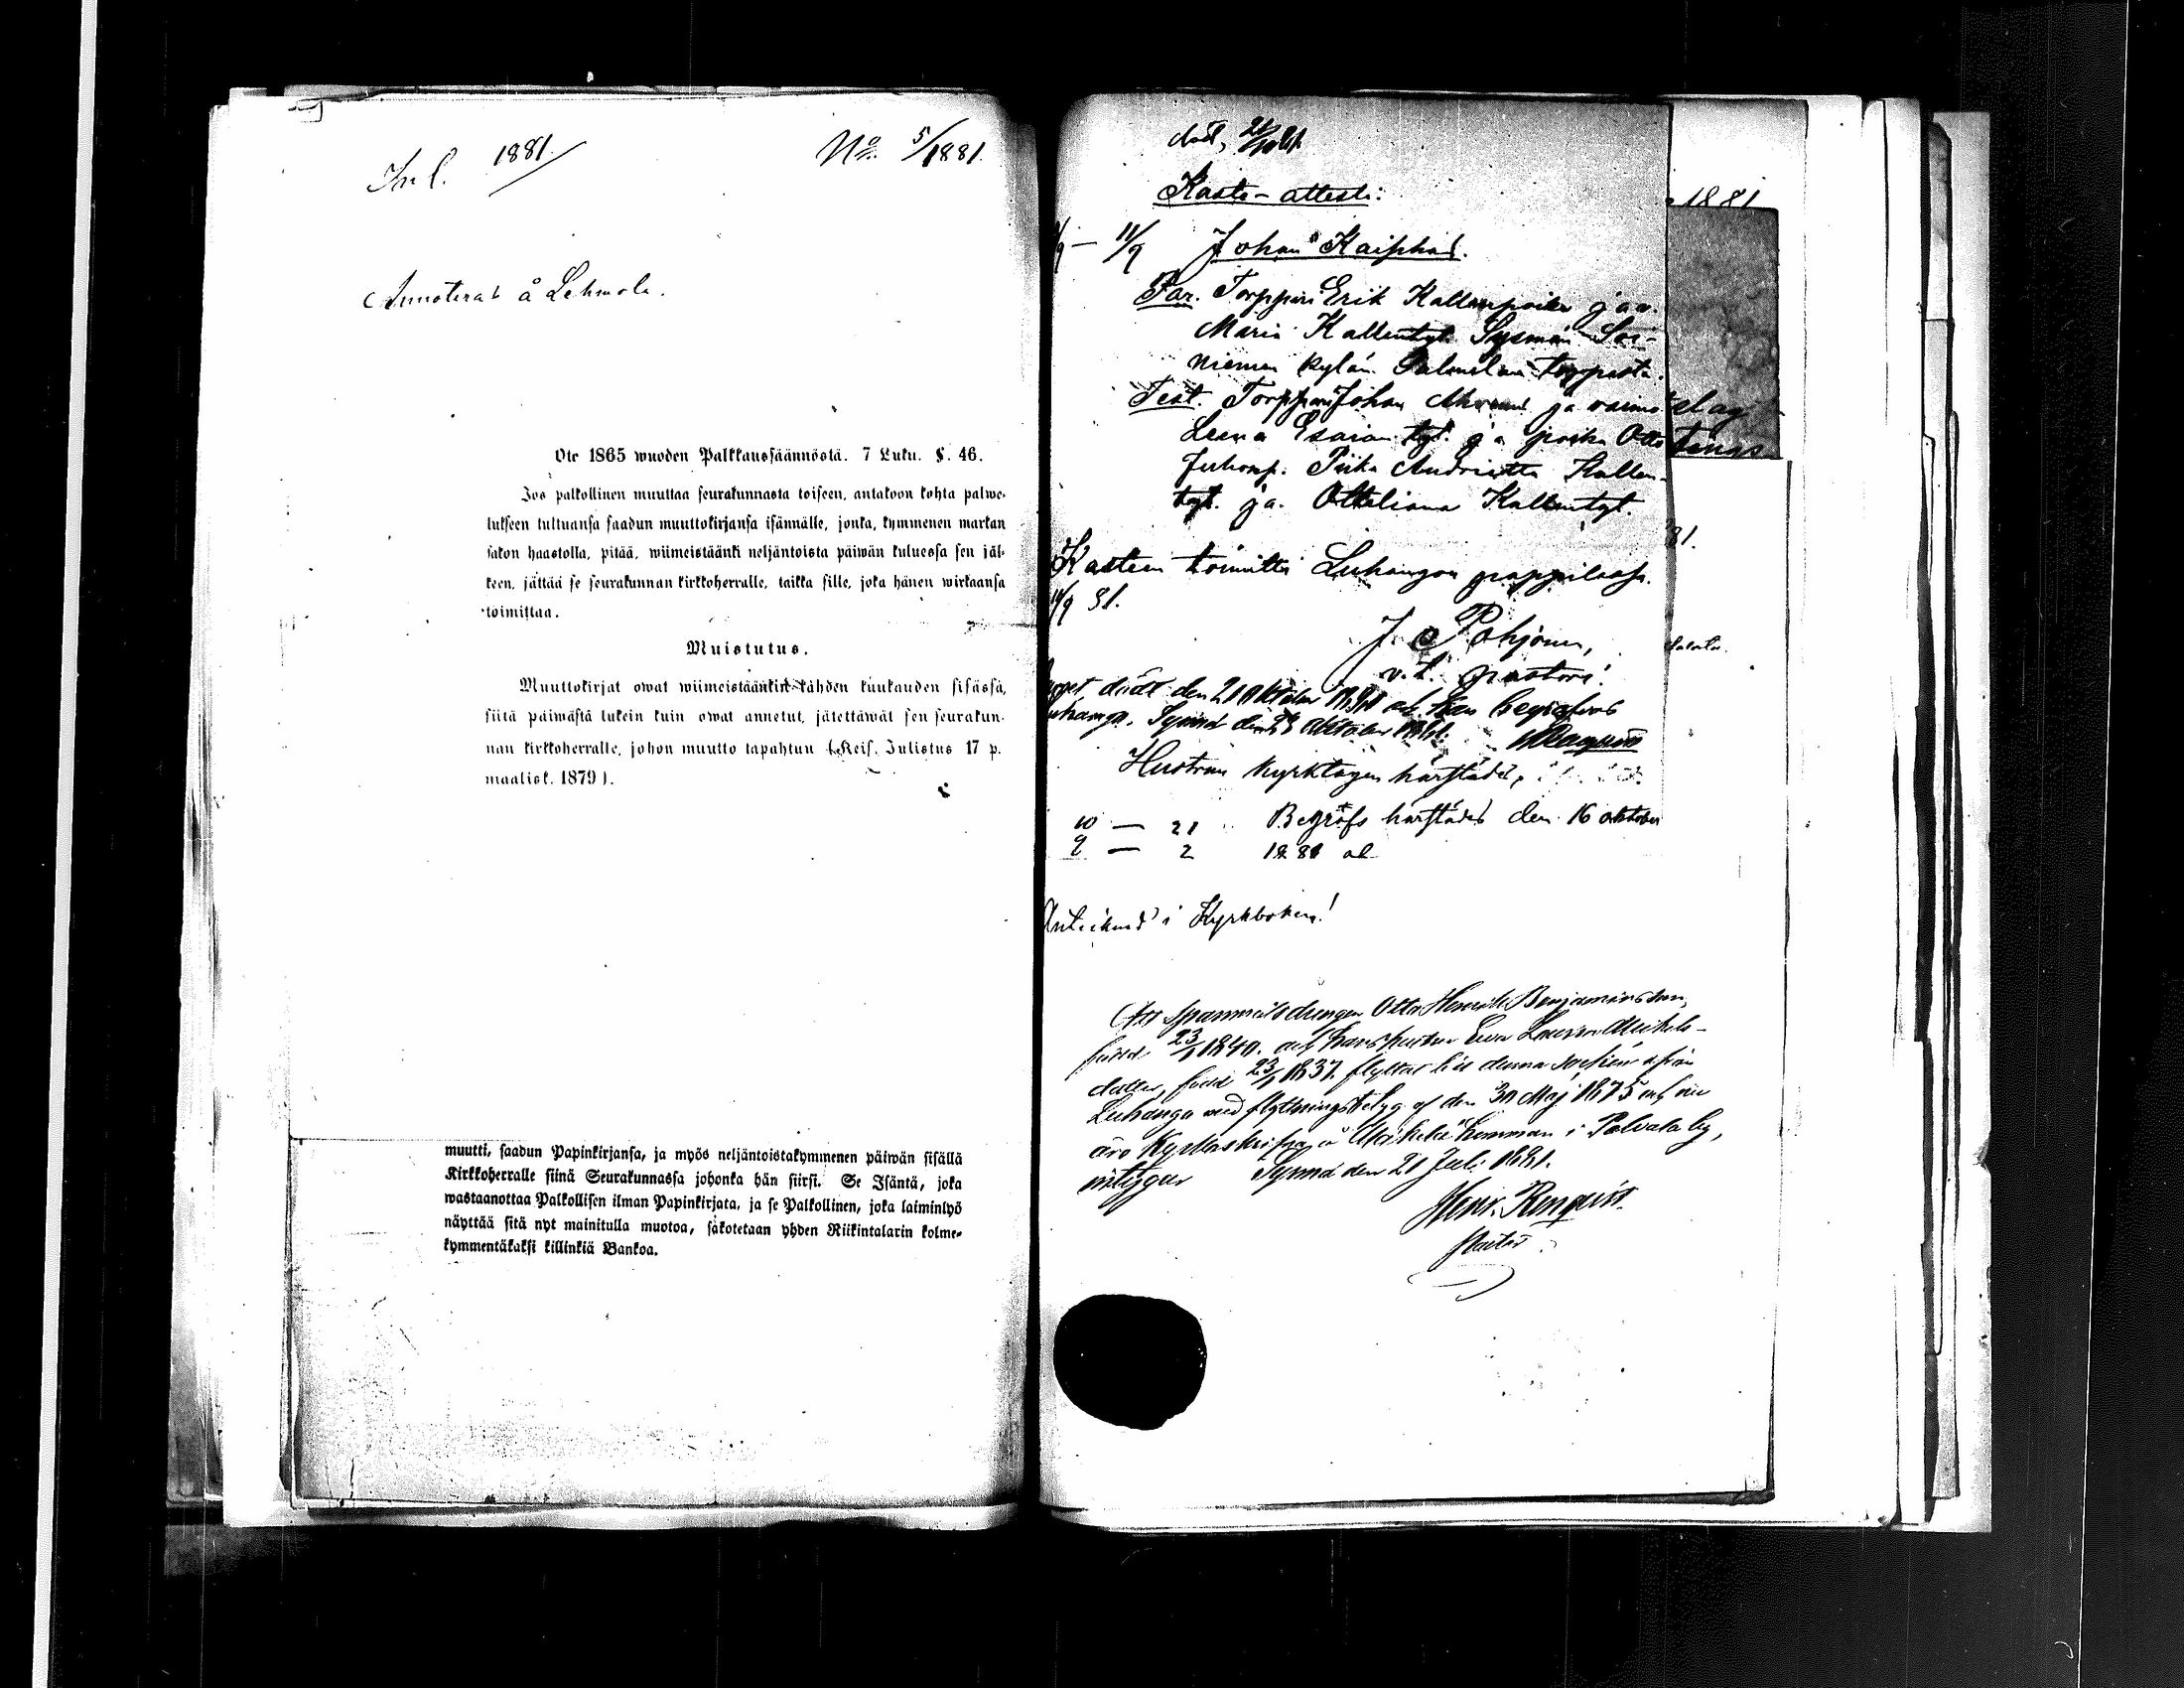 Inl. 1881.
No. 5/1881.
Annoterad å Lehmola.
Ote 1865 wuoden Palkkaussäännöstä. 7 Luku. §. 46.
Jos palkollinen muuttaa seurakunnasta toiseen, antakoon kohta palwe-
lukseen tultuansa saadun muuttokirjansa isännälle, jonka, kymmenen markan
sakon haastolla, pitää, wiimeistäänki neljäntoista päiwän kuluessa sen jäl-
keen, jättää se seurakunnan kirkkoherralle, taikka sille, joka hänen wirkaansa
toimittaa.
Muistutus.
Muuttokirjat owat wiimeistäänkin kahden kuukauden sisässä,
siitä päiwästä lukein kuin owat annetut, jätettäwät sen seurakun-
nan kirkkoherralle, johon muutto tapahtuu (Keis. Julistus 17 p.
maalisk. 1879).
muutti, saadun Papinkirjansa, ja myös neljäntoistakymmenen päiwän sisällä
Kirkkoherralle siinä Seurakunnassa johonka hän siirsi. Se Isäntä, joka
wastaanottaa Palkollisen ilman Papinkirjata, ja se Palkollinen, joka laiminlyö
näyttää sitä nyt mainitulla muotoa, sakotetaan yhden Riikintalarin kolme-
kymmentäkaksi killinkiä Bankoa.
Kaste-attesti:
11/9 Johan Kaiphas.
Par. Torppari Erik Kallenpoika ja v.
Maria Kallentyt. Sysmän
niemen kylän torpasta.
Test. Torppari Johan ja vaimo
Leena Esaian tyt. ja poika Otto
Juhonp. Piika Andriette Kallen-
tyt. ja Otteliana Kallentyt.
Kasteen toimitti Luhangon pappilassa
11/9 81.
J. Pohjonen,
v.t. pastori.
död den 21 Oktober 1881 och kan begrafvas
Luhanga. Sysmä den 23 Oktober 1881.
Hustrun kyrktagen härstädes,
10 — 21 Begrafs härstädes den 16 oktober
9 — 2 1881
Antecknad i Kyrkboken!
Att spanmålsdrengen Otto Henrik Benjaminsson,
född 23/1 1840. och hans hustru Eva Lovisa Mickels-
dotter, född 23/1 1837. flyttat till denna socken från
Luhanga med flyttningsbetyg af den 30 Maj 1875 och nu
äro kyrkoskrifna å hemman i Palvala by,
intygar Sysmä den 21 Juli 1881.
Henr. Renqvist.
Pastor.
1881
81.